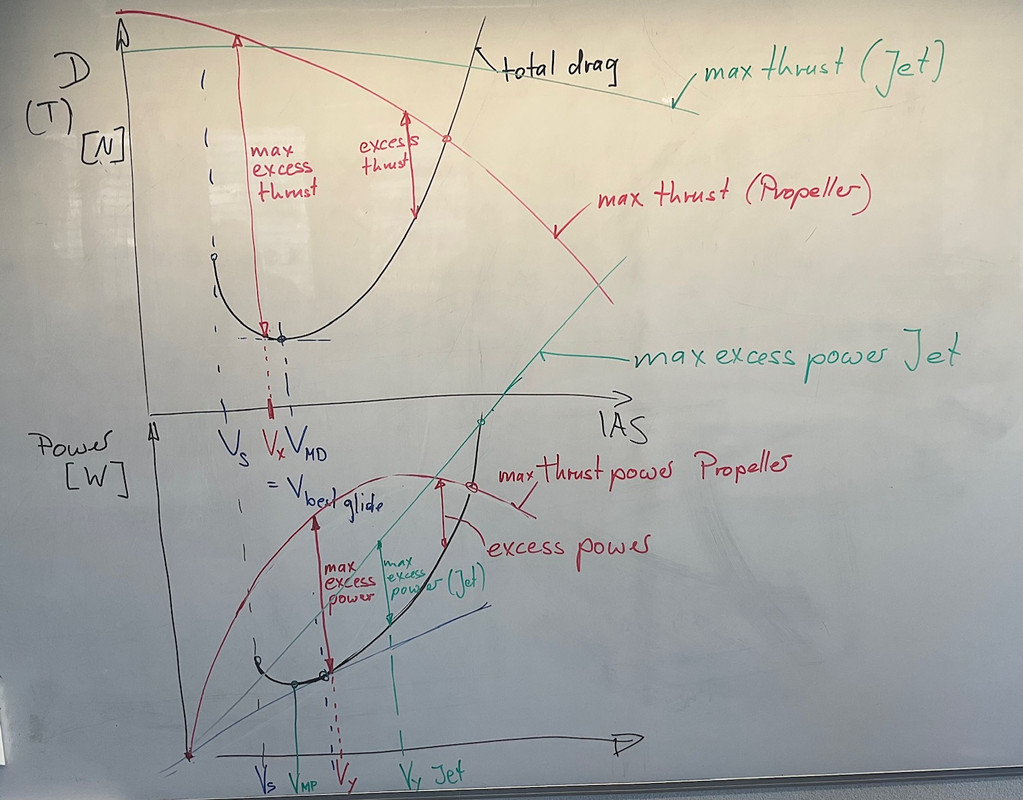 D
(T)
[N]
total drag
max thrust (Jet)
max
excess
thrust
excess
thrust
max thrust (Propeller)
max excess power Jet
IAS
Vs
Vx
VMD
= Vbest glide
Power
[W]
max thrust power Propeller
excess power
max
excess
power
max
excess
power (Jet)
Vs
VMP
Vy
Vy Jet